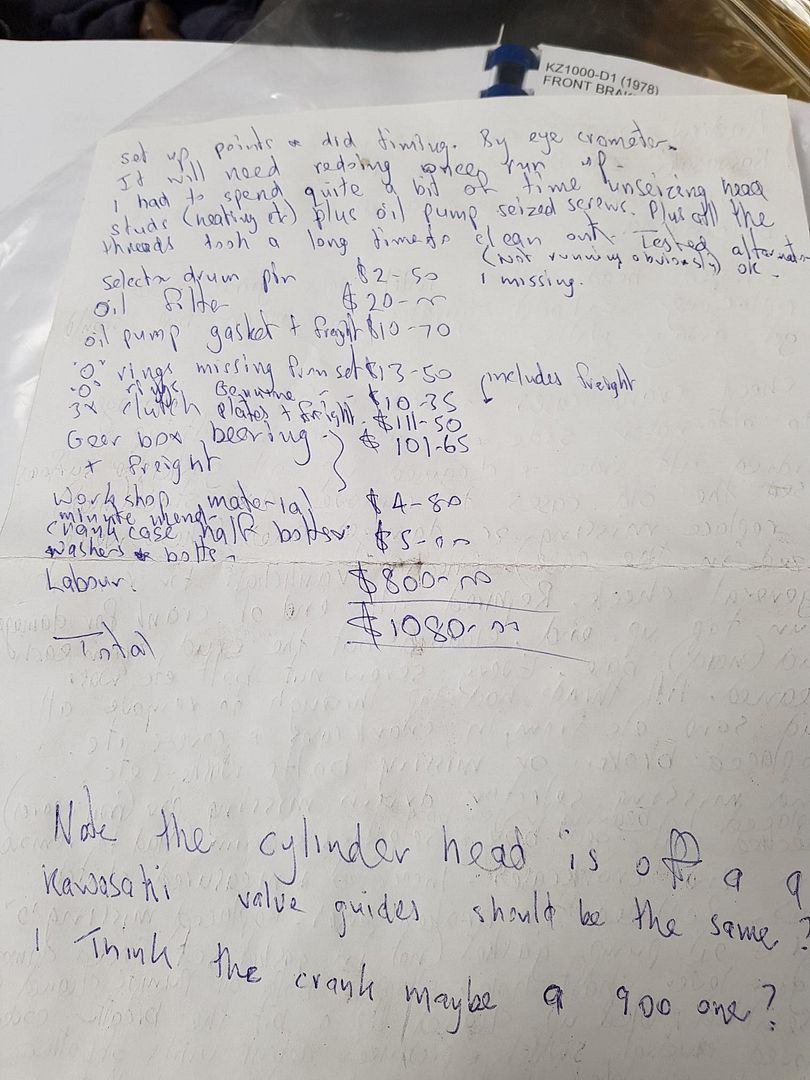 KZ1000-D1 (1978)
FRONT
set up points & did timing. By eye crometer.
It will need redoing run up.
I had to spend quite a bit of time unseizing head
studs (heating etc) plus oil pump seized screws. Plus all the
threads took a long time to clean out. Tested alternator
(not running obviously) ok.
selector drum pin $2-50 1 missing.
oil filter $20-00
oil pump gasket + freight $10-70
"O" rings missing from set $13-50
"O" rings Genuine -- $10-35 includes freight
3x clutch plates + freight. $111-50
Gear box beering $101-65
+ freight
Workshop material $4-80
crank case half $5-00
washers & bolts.
Labour. $800-00
Total $1080-00
Note the cylinder head is off a 9
Kawasaki valve guides should be the same?
I Think the crank maybe a 900 one?